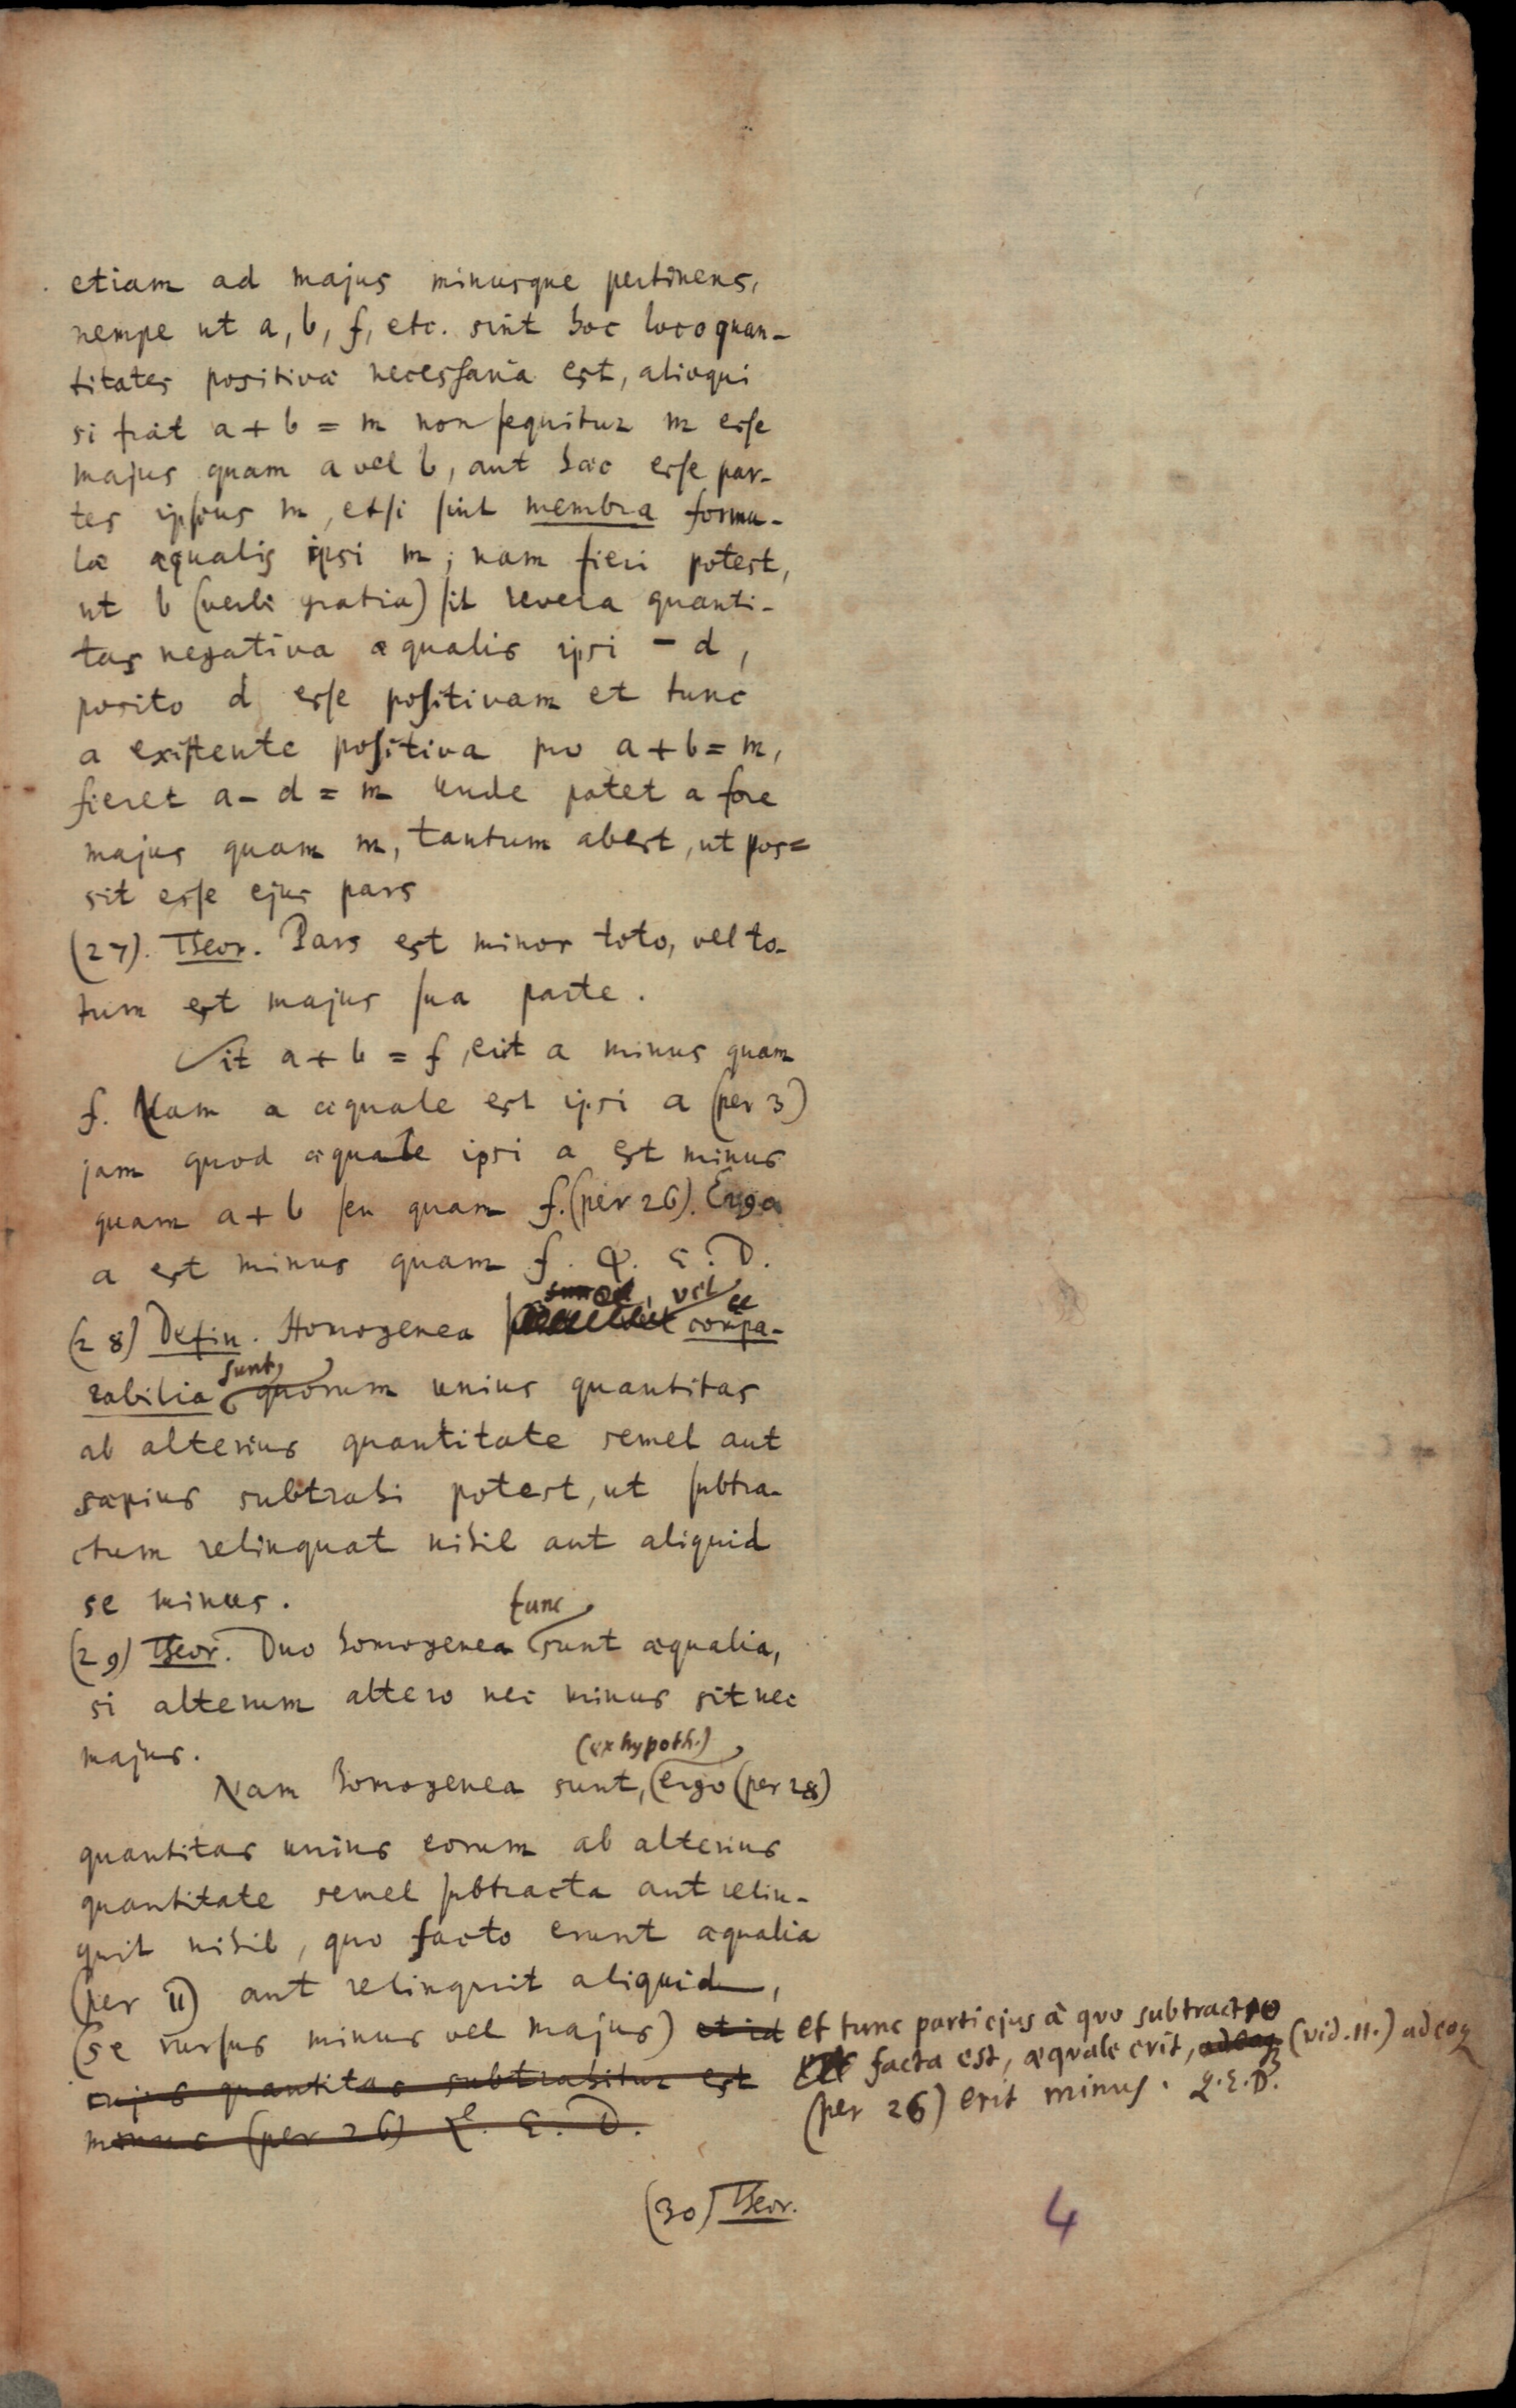 etiam ad majus minusque pertinens,
nempe ut a, b, f, etc. sint hoc loco quan-
titates positivæ necessaria est, alioqui
si fiat a + b = m non sequitur m esse
majus quam a vel b, aut hæc esse par-
tes ipsius m, etsi sint membra formu-
læ æqualis ipsi m; nam fieri potest,
ut b (verbi gratia) sit revera quanti-
tas negativa æqualis ipsi - d,
posito d esse positivam et tunc
a existente positiva pro a + b = m,
fieret a - d = m unde patet a fore
majus quam m, tantum abest, ut pos=
sit esse ejus pars
(27). Theor. Pars est minor toto, vel to-
tum est majus sua parte.
Sit a + b = f, erit a minus quam
f. Nam a æquale est ipsi a (per 3)
jam quod æquale ipsi a est minus
quam a + b seu quam f. (per 26). Ergo
a est minus quam f. Q. E. D.
vel
(28) Defin. Homogenea compa-
sunt,
rabilia quorum unius quantitas
ab alterius quantitate semel aut
sæpius subtrahi potest, ut subtra-
ctum relinquat nihil aut aliquid
se minus.
tunc
(29) Theor. Duo homogenea sunt æqualia,
si alterum altero nec minus sit nec
majus.
(ex hypoth.)
Nam homogenea sunt, ergo (per 28)
quantitas unius eorum ab alterius
quantitate semel subtracta aut relin-
quit nihil, quo facto erunt æqualia
(per 11) aut relinquit aliquid,
(se rursus minus vel majus) et id et tunc parti ejus à quo subtractio
cujus quantitas subtrahitur est facta est, æquale erit, adeoq (vid. 11.) adeoq
minus (per 26) Q. E. D. (per 26) erit minus. Q.E.D.
(30) Theor.
4